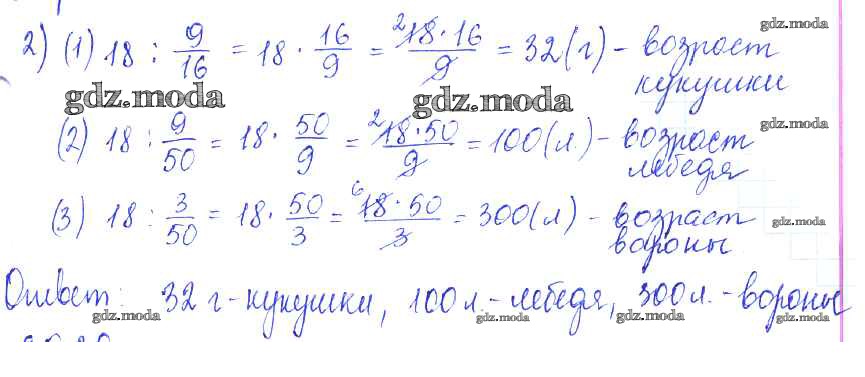 2) (1) 18 : 9/16 = 18 · 16/9 = 18·16/9 = 32 (г) - возраст кукушки
gdz.moda
gdz.moda
gdz.moda
gdz.moda
(2) 18 : 9/50 = 18 · 50/9 = 18·50/9 = 100 (л.) - возраст лебедя
gdz.moda
(3) 18 : 3/50 = 18 · 50/3 = 18·50/3 = 300 (л) - возраст вороны
gdz.moda
Ответ: 32 г - кукушки, 100 л. - лебедя, 300 л. - вороны
gdz.moda
gdz.moda
gdz.moda